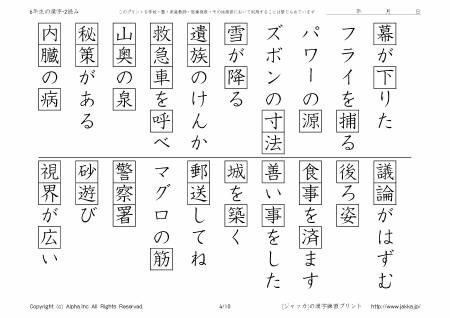 6年生の漢字-2読み
このプリントを学校・塾・家庭教師・医療機関・その他施設において利用することは禁じられています
年 月 日
幕が下りた
フライを捕る
パワーの源
ズボンの寸法
雪が降る
遺族のけんか
救急車を呼べ
山奥の泉
秘策がある
内臓の病
議論がはずむ
後ろ姿
食事を済ます
善い事をした
城を築く
郵送してね
マグロの筋
警察署
砂遊び
視界が広い
Copyright (c) Alpha.Inc All Rights Reserved.
4/10
[ジャッカ]の漢字練習プリント http://www.jakka.jp/